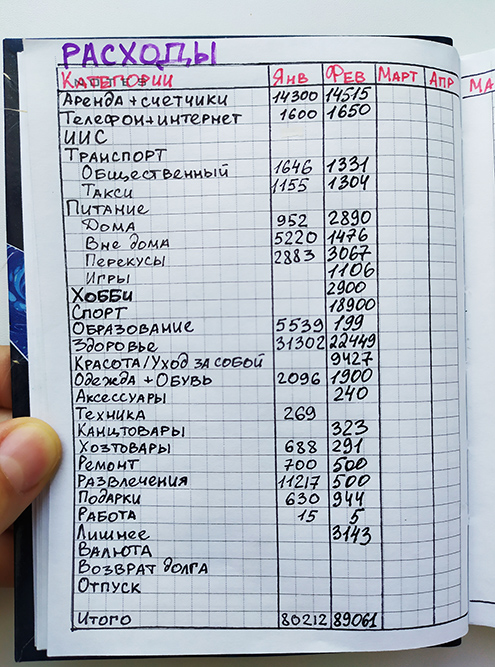 РАСХОДЫ
КАТЕГОРИИ ЯНВ ФЕВ МАРТ АПР МА
АРЕНДА + СЧЕТЧИКИ 14300 14515
ТЕЛЕФОН+ИНТЕРНЕТ 1600 1650
ИИС
ТРАНСПОРТ
ОБЩЕСТВЕННЫЙ 1646 1331
ТАКСИ 1155 1304
ПИТАНИЕ
ДОМА 952 2890
ВНЕ ДОМА 5220 1476
ПЕРЕКУСЫ 2883 3067
ИГРЫ 1106
ХОББИ 2900
СПОРТ 18900
ОБРАЗОВАНИЕ 5539 199
ЗДОРОВЬЕ 31302 22449
КРАСОТА/УХОД ЗА СОБОЙ 9427
ОДЕЖДА + ОБУВЬ 2096 1900
АКСЕССУАРЫ 240
ТЕХНИКА 269
КАНЦТОВАРЫ 323
ХОЗТОВАРЫ 688 291
РЕМОНТ 700 500
РАЗВЛЕЧЕНИЯ 11217 500
ПОДАРКИ 630 944
РАБОТА 15 5
ЛИШНЕЕ 3143
ВАЛЮТА
ВОЗВРАТ ДОЛГА
ОТПУСК
ИТОГО 80212 89061